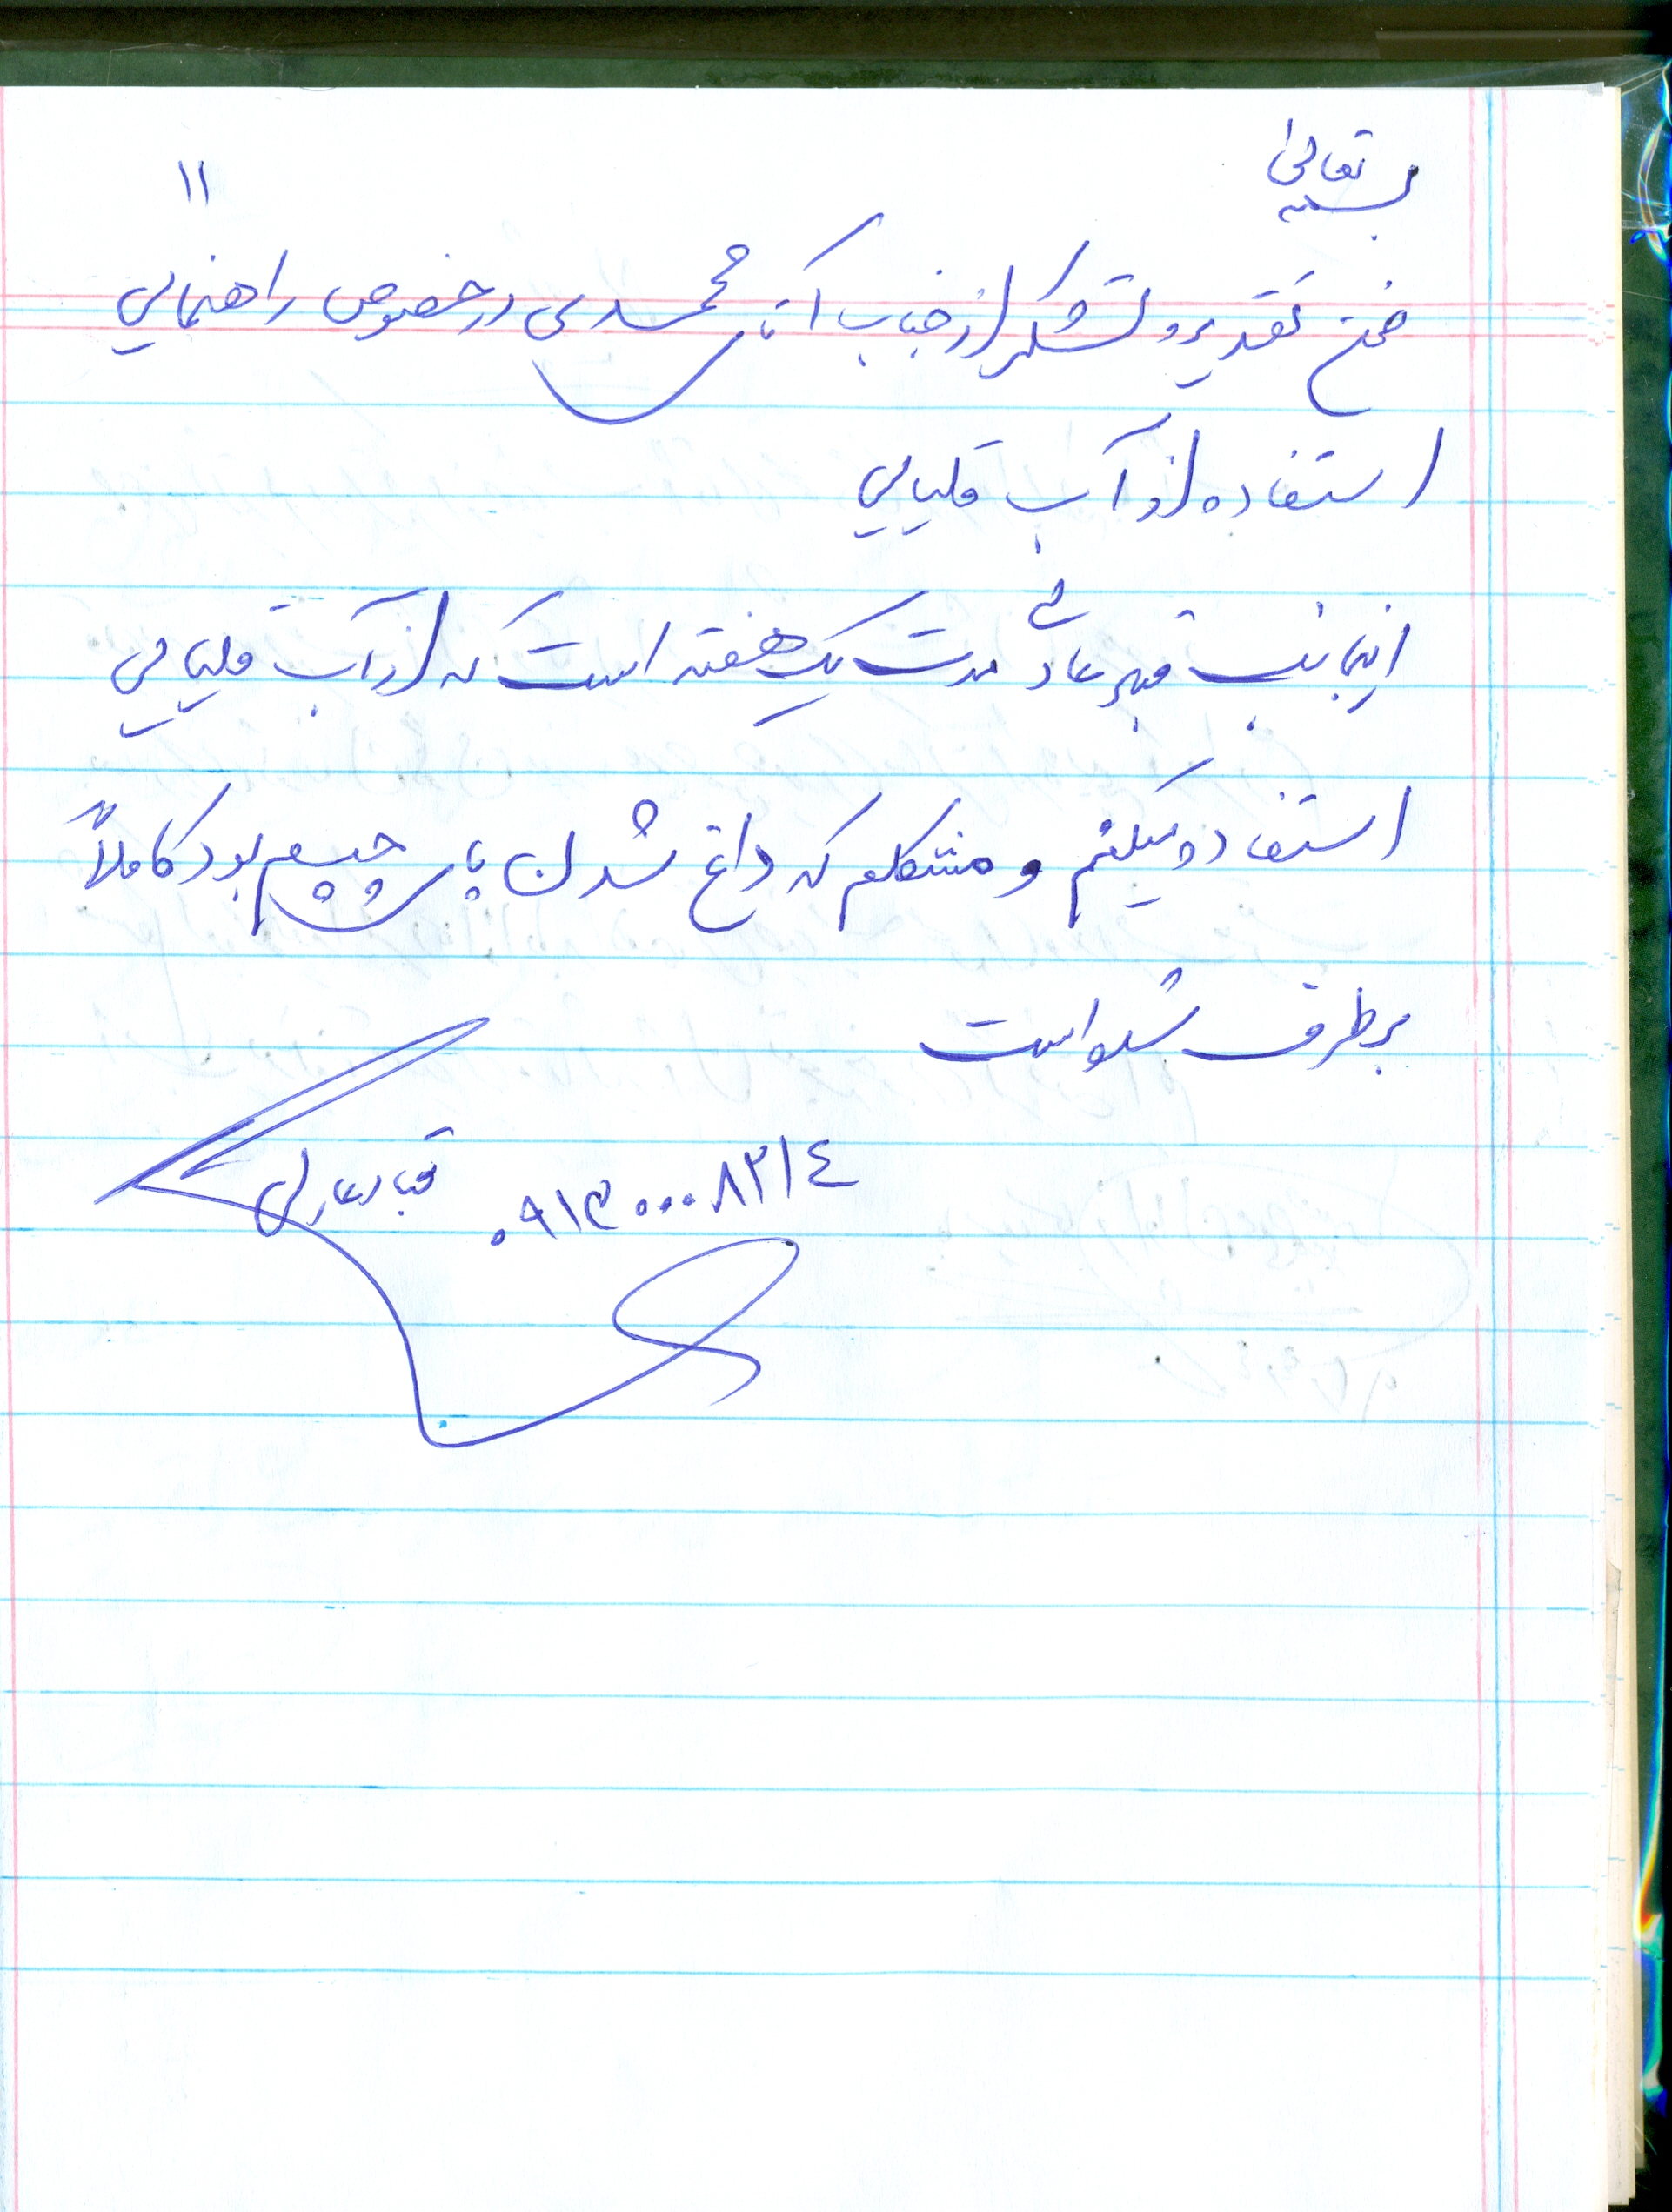 بسمه تعالی
۱۱
ضمن تقدیر و تشکر از جناب آقای محمدی در خصوص راهنمایی
استفاده از آب قلیایی
اینجانب قباد عادلی مدت یک هفته است که از آب قلیایی
استفاده میکنم و مشکلم که داغ شدن پای چپم بود کاملاً
برطرف شده است
قباد عادلی
۰۹۱۳۰۰۰۸۲۱۴